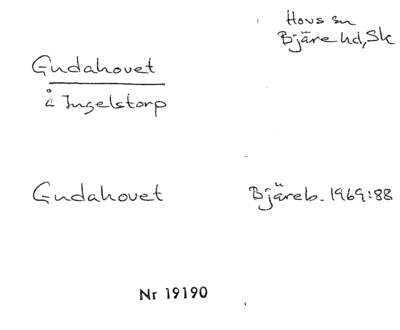 Hovs sn
Bjäre hd, Sk
Gudahovet
å Ingelstorp
Gudahovet Bjäreb. 1969:88
Nr 19190